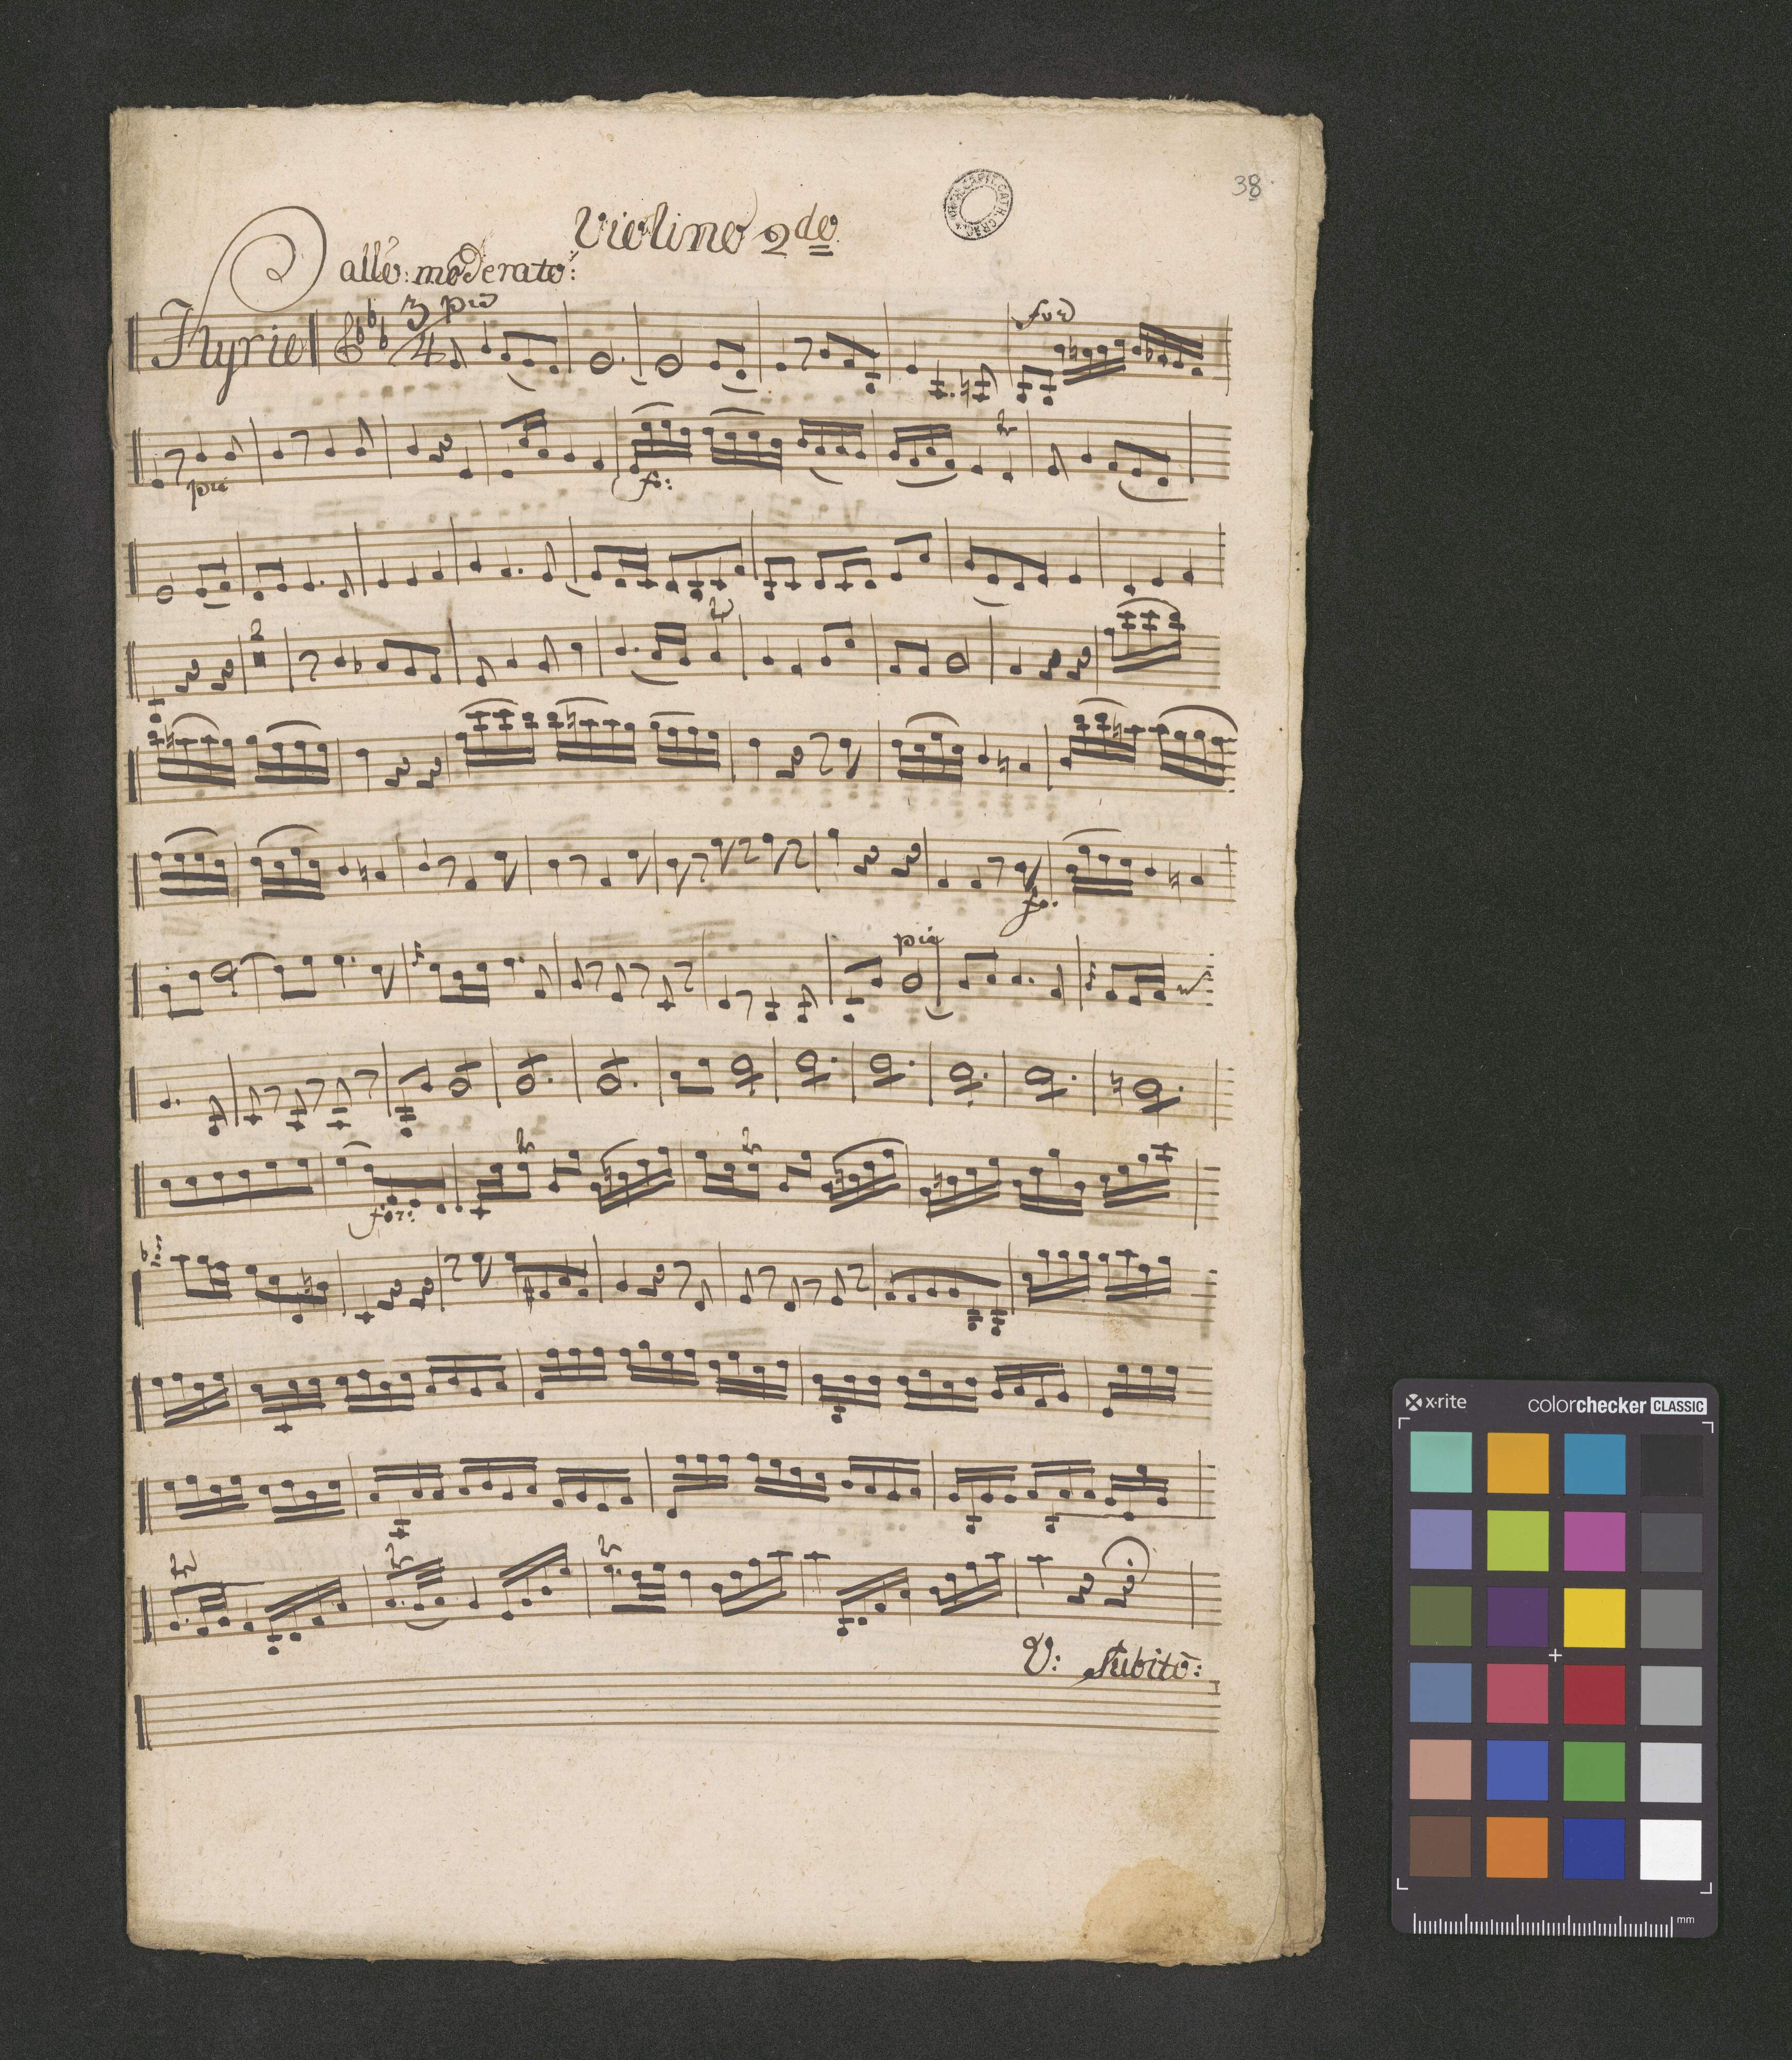 38
Violino 2do
allo: moderato:
Kyrie
3 pio
4
for
pia
fo:
2
fo:
pia
for:
V: Subito:
x-rite
colorchecker CLASSIC
mm